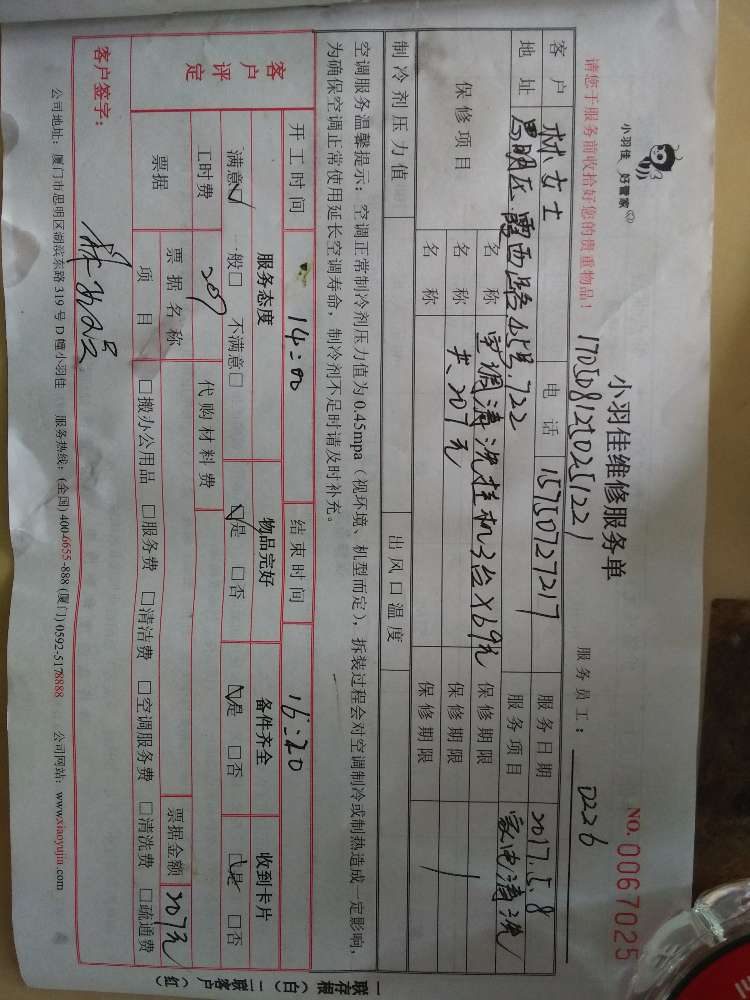 小羽佳 好管家
小羽佳维修服务单
NO. 0067025
1705081210251221
服务员工: D226
请您于服务前收拾好您的贵重物品!
客户 林女士 电话 15750727217 服务日期 2017.5.8
地址 思明区 霞西路 722 服务项目 家电清洗
保修项目 名称 空调清洗挂机3台×69元 保修期限
名称 共207元 保修期限
名称 保修期限
制冷剂压力值 出风口温度
空调服务温馨提示:空调正常制冷剂压力值为0.45mpa(视环境、机型而定),拆装过程会对空调制冷或制热造成一定影响,
为确保空调正常使用延长空调寿命,制冷剂不足时请及时补充。
开工时间 14:00 结束时间 16:20
客户评定 服务态度 物品完好 备件齐全 收到卡片
满意☑ 一般□ 不满意□ ☑是 □否 ☑是 □否 ☑是 □否
工时费 207 代购材料费
票据 票据名称 票据金额 207元
项目 □搬办公用品 □服务费 □清洁费 □空调服务费 □清洗费 □疏通费
客户签字:
公司地址:厦门市思明区湖滨东路319号D幢小羽佳 服务热线:(全国)400-6655-888 (厦门)0592-5178888 公司网站:www.xiaoyujia.com
一联存根(白) 二联客户(红)